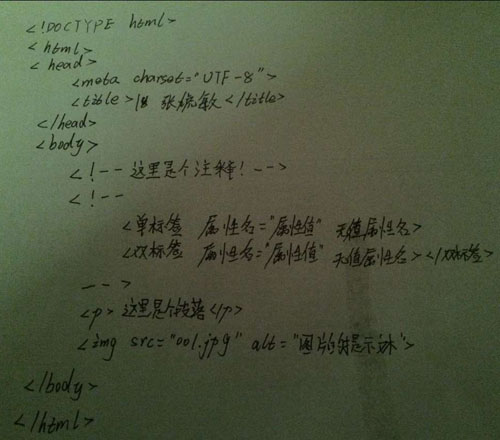 <!DOCTYPE html>
<html>
<head>
<meta charset="UTF-8">
<title>张 敏</title>
</head>
<body>
<!-- 这里是个注释! -->
<!--
<单标签 属性名="属性值" 无值属性名>
<双标签 属性名="属性值" 无值属性名></双标签>
-->
<p>这里是个段落</p>
<img src="001.jpg" alt="图片的提示">
</body>
</html>